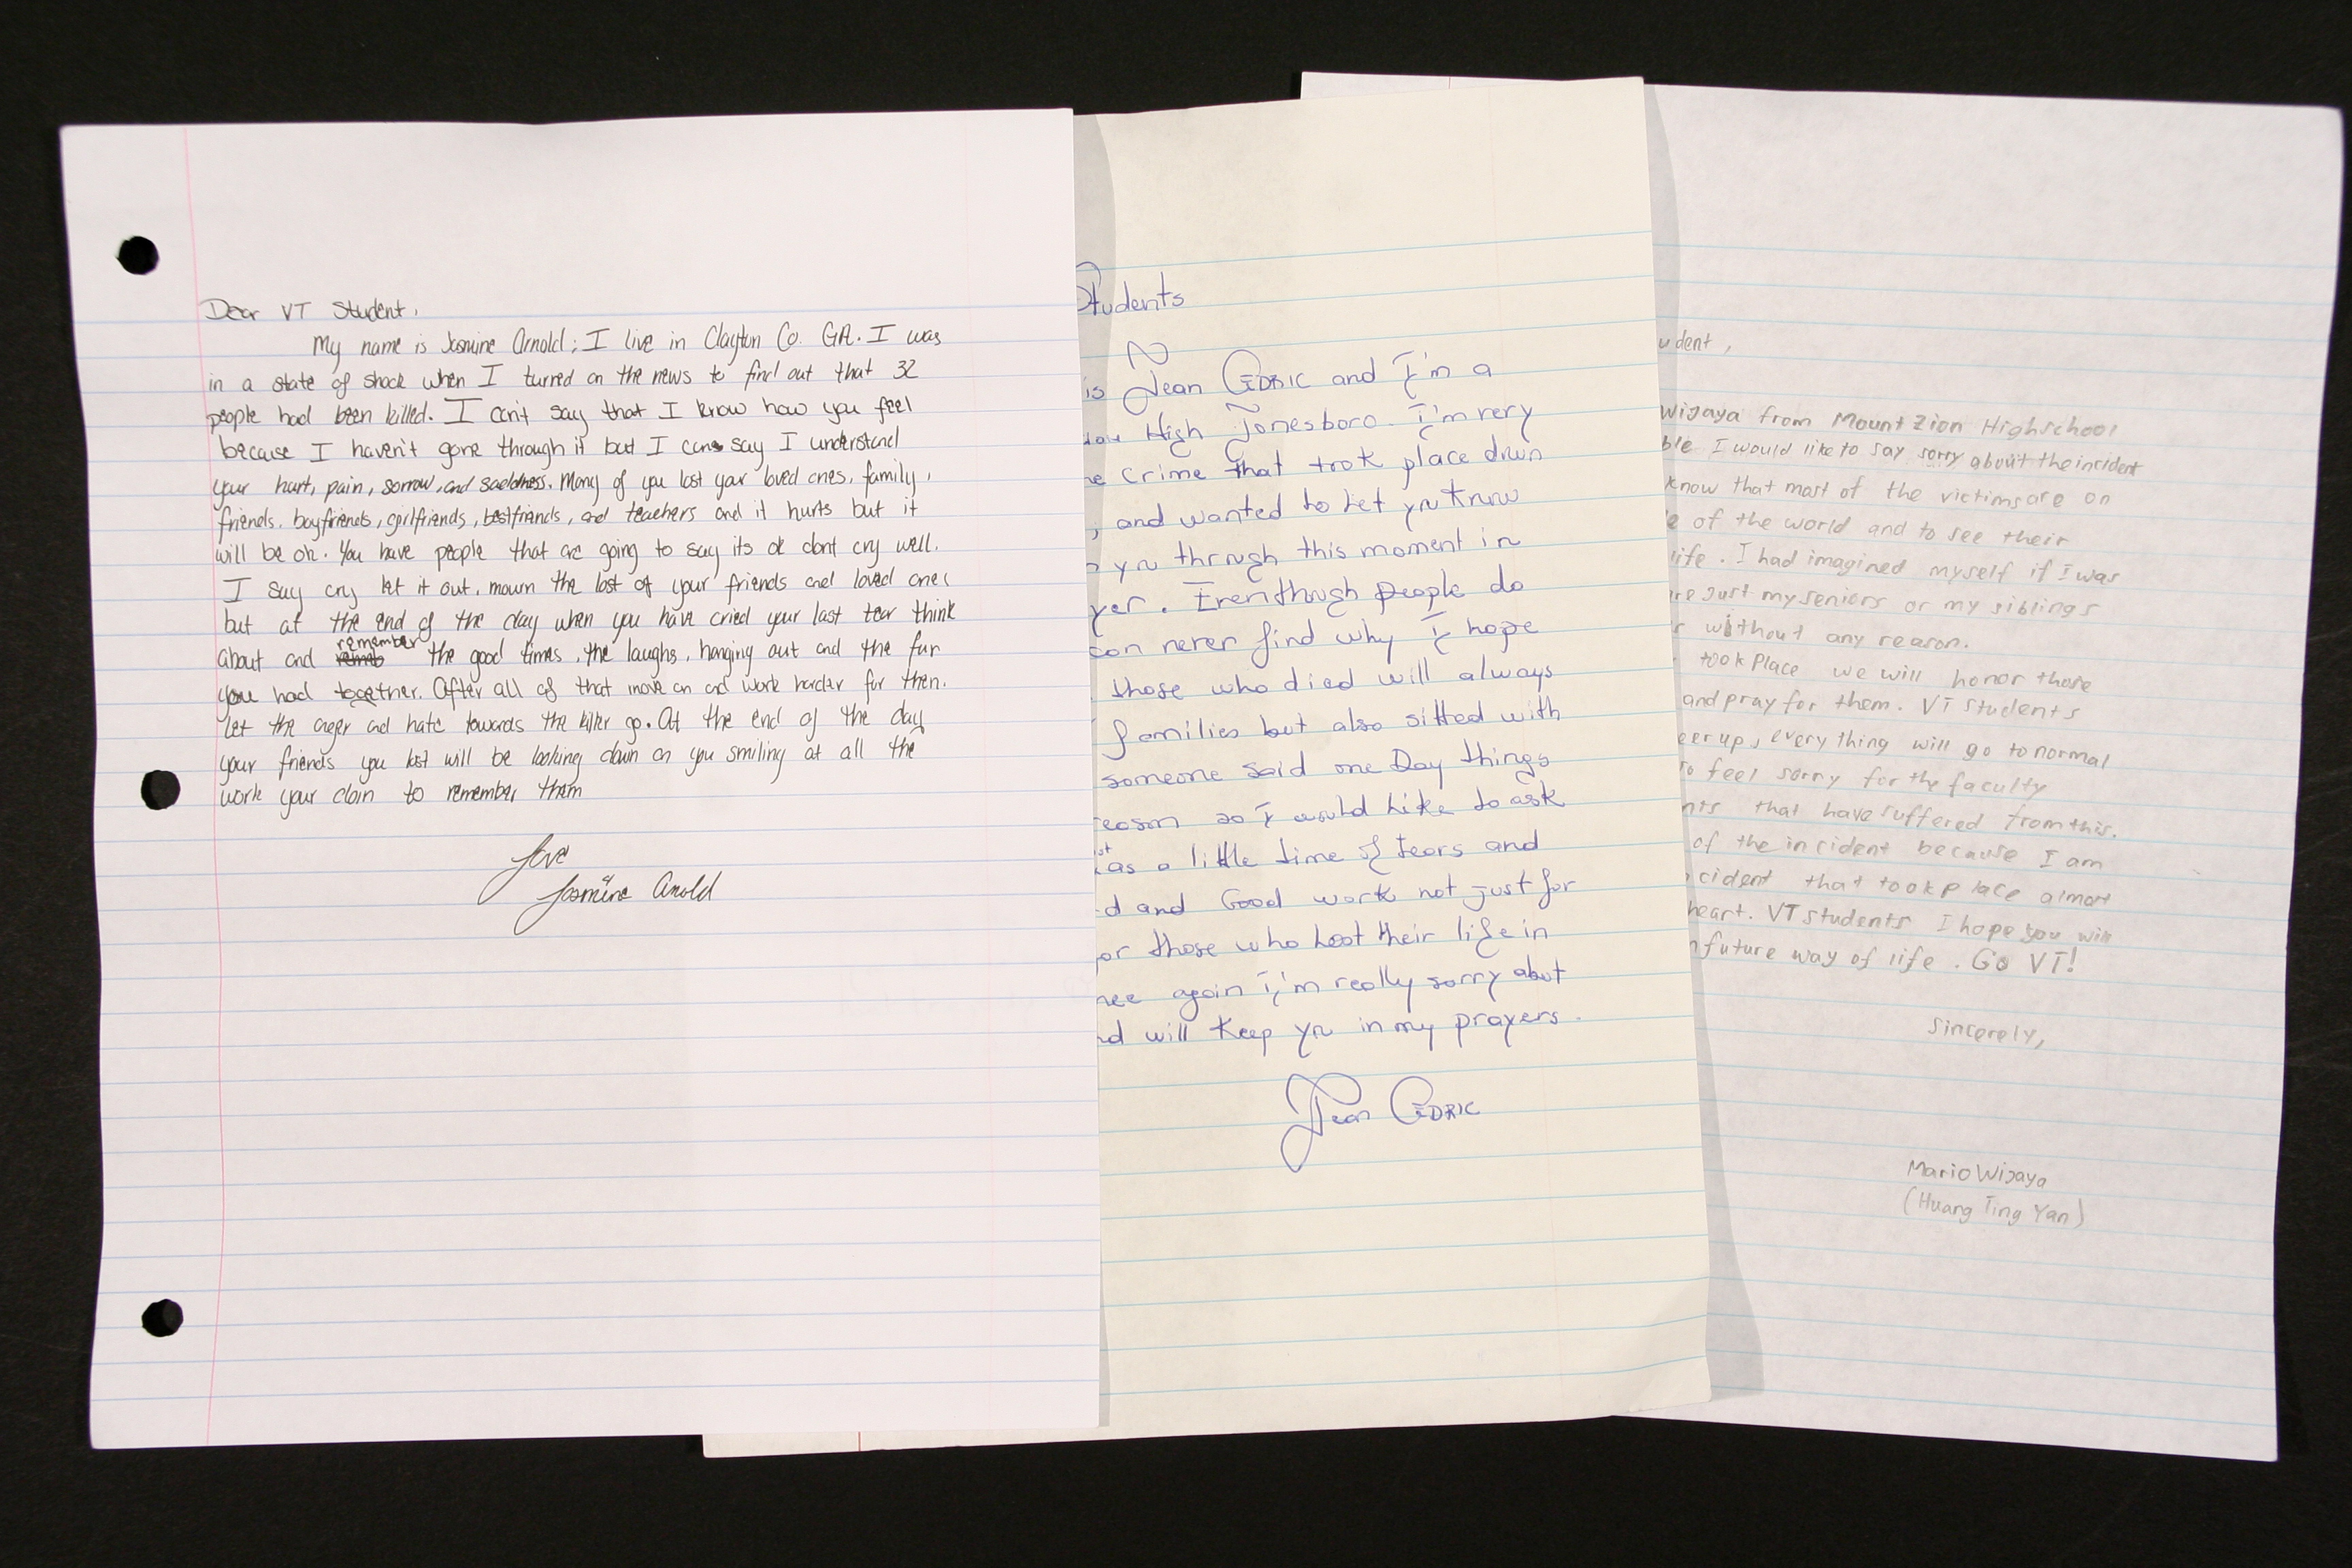 Dear VT Student,
My name is Jasmine Arnold; I live in Clayton Co. GA. I was
in a state of shock when I turned on the news to find out that 32
people had been killed. I can't say that I know how you feel
because I haven't gone through it but I can say I understand
your hurt, pain, sorrow, and saddness. Many of you lost your loved ones, family,
friends, boyfriends, girlfriends, bestfriends, and teachers and it hurts but it
will be ok. You have people that are going to say its ok dont cry well.
I say cry let it out, mourn the lost of your friends and loved ones
but at the end of the day when you have cried your last tear think
about and remember the good times, the laughs, hanging out and the fun
you had together. After all of that move on and work harder for them.
Let the anger and hate towards the killer go. At the end of the day
your friends you lost will be looking down on you smiling at all the
work your doin to remember them
Love
Jasmine Arnold
Students
is Jean CEDRIC and I'm a
High Jonesboro. I'm very
crime that took place down
, and wanted to let you know
you through this moment in
. Eventhough people do
never find why I hope
those who died will always
families but also sitted with
someone said one Day things
so I would like to ask
as a little time of tears and
and Good work not just for
those who lost their life in
again I'm really sorry about
will keep you in my prayers.
Jean CEDRIC
udent,
Wijaya from Mount Zion Highschool
I would like to say sorry about the incident
know that most of the victims are on
of the world and to see their
life. I had imagined myself if I was
just my seniors or my siblings
without any reason.
took place we will honor those
and pray for them. VT students
eer up, every thing will go to normal
to feel sorry for the faculty
that have suffered from this.
of the incident because I am
cident that took place almost
heart. VT students I hope you will
future way of life. Go VT!
Sincerely,
Mario Wijaya
(Huang Ting Yan)